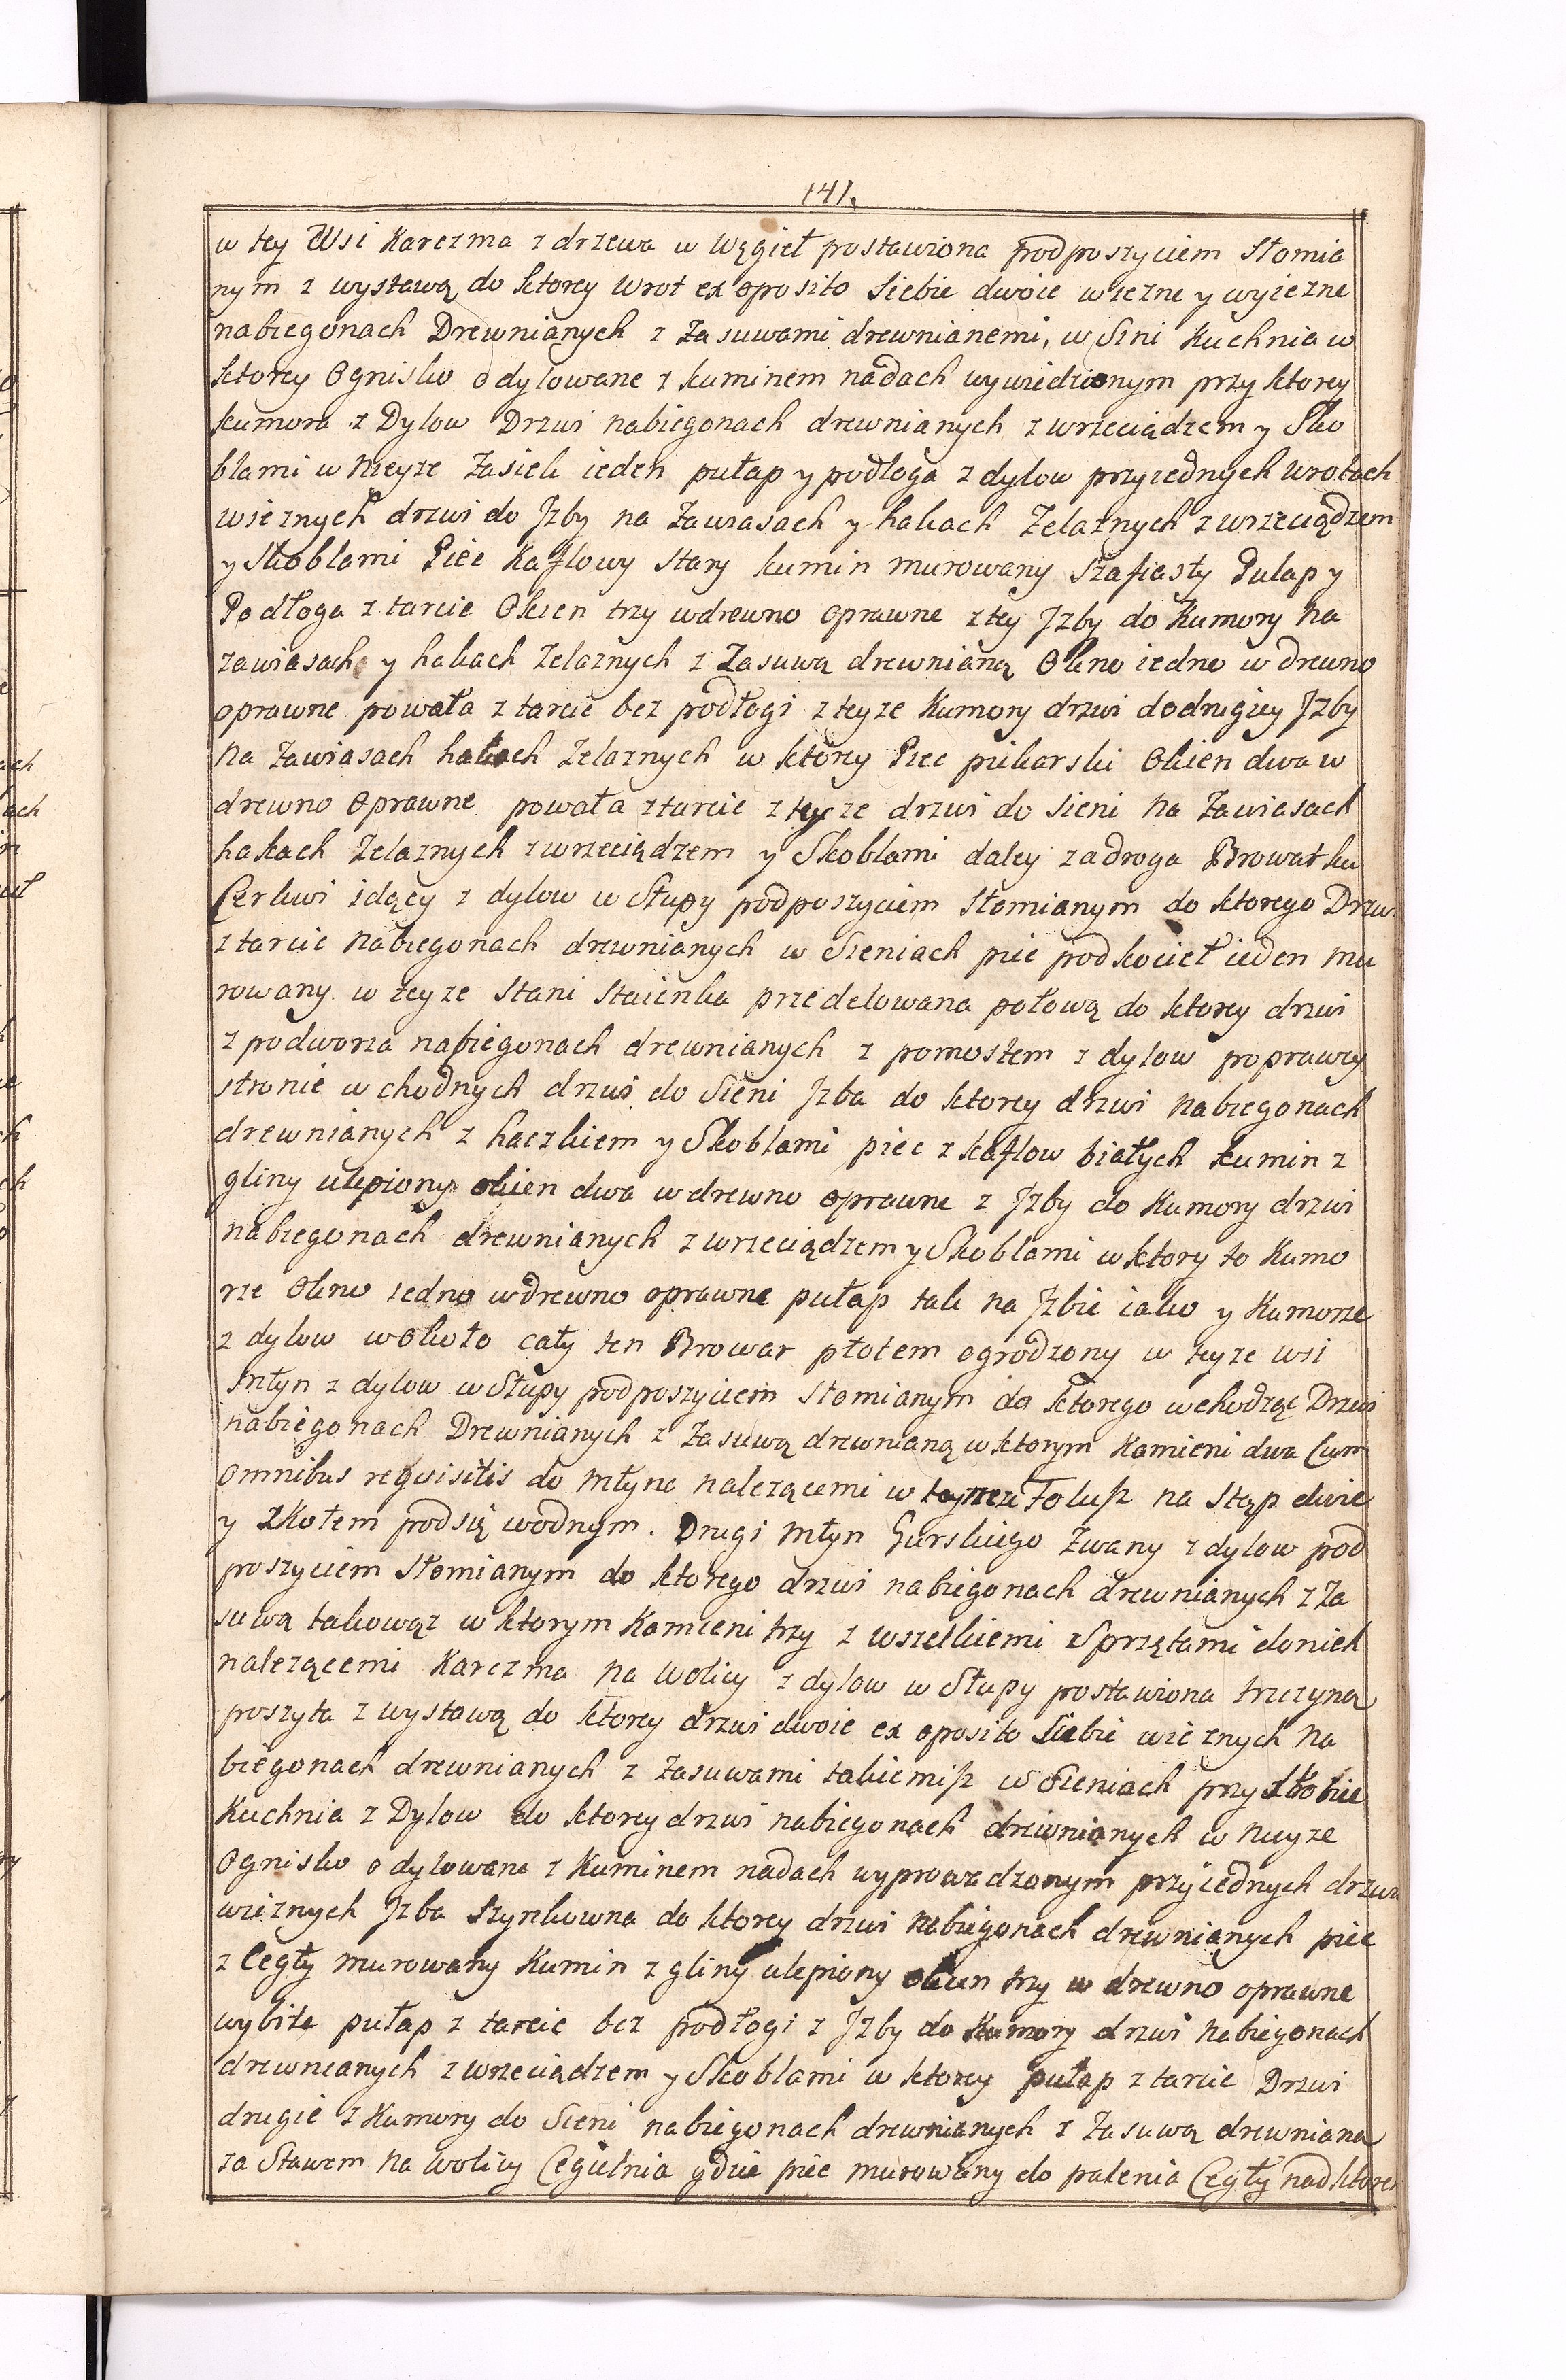 141.
w tey Wsi Karczma z drzewa w Węgieł postawiona podposzyciem Słomia
nym z wystawą do ktorey Wrot ex oposito Siebie dwoie wiezne y wyiezne
nabiegonach Drewnianych z Zasuwami drewnianemi, w Sini Kuchnia w
ktorey Ognisko odylowane z kuminem nadach wywiedzionym przy ktorey
kumora z Dylow Drzwi nabiegonach drewnianych z wrzeciądzem y Sko
blami w nieyze Zasiek ieden pułap y podłoga z dylow przyiednych Wrotach
wieznych drzwi do Jzby na Zawiasach y hakach Zelaznych z wrzeciądzem
y Skoblami Piec Kaflowy Stary kumin murowany Szafiasty Pulap y
Podłoga z tarcic Okien trzy wdrewno oprawne z tey Jzby do Kumory na
zawiasach y hakach Zelaznych z Zasuwą drewnianą Okno iedno w drewno
oprawne powała z tarcic bez podłogi z teyze Kumory drzwi dodrugiey Jzby
na Zawiasach hakach Zelaznych w ktorey Piec piekarski Okien dwa w
drewno Oprawne powała ztarcic z teyze drzwi do Sieni na Zawiasach
hakach Zelaznych z wrzeciądzem y Skoblami daley zadroga Browar ku
Cerkwi idący z dylow w Słupy podposzyciem Słomianym do ktorego Drzwi
z tarcic nabiegonach drewnianych w Sieniach piec podkocieł ieden mu
rowany w teyze Stani Staienka przedelowana połową do ktorey drzwi
z podworza nabiegonach drewnianych z pomostem z dylow poprawey
stronie wchodnych drzwi do Sieni Jzba do ktorey drzwi nabiegonach
drewnianych z haczkiem y Skoblami piec z kaflow białych kumin z
gliny ulepiony okien dwa wdrewno oprawne z Jzby do Kumory drzwi
nabiegonach drewnianych z wrzeciądzem y Skoblami w ktory to Kumo
rze Okno iedno wdrewno oprawne pułap tak na Jzbie iako y Kumorze
z dylow wokoło cały ten Browar płotem ogrodzony w teyze wsi
Młyn z dylow w Słupy podposzyciem Słomianym do ktorego wchodząc Drzwi
nabiegonach Drewnianych z Zasuwą drewnianą w ktorym Kamieni dwa Cum
omnibus requisitis do Młyna nalezącemi w Folusz na Stąp dwie
y z Kołem podsię wodnym. Drugi Młyn Gurskiego Zwany z dylow pod
poszyciem Słomianym do ktorego drzwi nabiegonach drewnianych z Za
suwą takowąz w ktorym Kamieni trzy z wszelkiemi Sprzętami donich
nalezącemi Karczma na Wolicy z dylow w Słupy postawiona trzczyną
poszyta z wystawą do ktorey drzwi dwoie ex oposito Siebie wieznych na
biegonach drewnianych z Zasuwami takiemisz w Sieniach przy Słobie
Kuchnia z Dylow do ktorey drzwi nabiegonach drewnianych w nieyze
Ognisko odylowane z Kuminem nadach wyprowadzonym przyiednych drzwi
wieznych Jzba Szynkowna do ktorey drzwi nabiegonach drewnianych piec
z Cegły murowany Kumin z gliny ulepiony okien trzy w drewno oprawne
wybite pułap z tarcic bez podłogi z Jzby do Kumory drzwi nabiegonach
drewnianych z wrzeciądzem y Skoblami w ktorey pułap z tarcic Drzwi
drugie z Kumory do Sieni nabiegonach drewnianych z Zasuwą drewnianą
za Stawem na Wolicy Cegielnia gdzie piec murowany do palenia Cegły nad